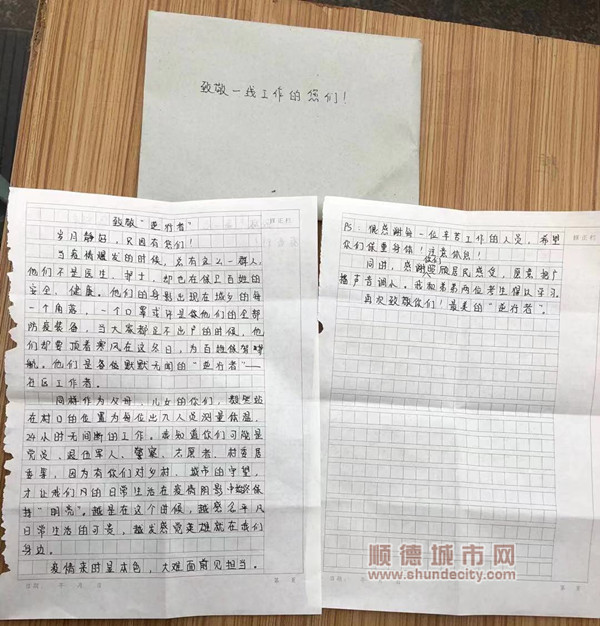 致敬一线工作的您们!
致敬“逆行者”
岁月静好，只因有您们！
当疫情爆发的时候，总有这么一群人，
他们不是医生、护士，却也在保卫百姓的
安全、健康。他们的身影出现在城乡的每
一个角落，一个口罩或许是他们的全部
防疫装备，当大家都足不出户的时候，他
们却要顶着寒风在这冬日，为百姓保驾护
航。他们是各位默默无闻的“逆行者”——
社区工作者。
同样作为父母、儿女的你们，
在村口的位置为每位出入人员测量体温，
24小时无间断的工作。我知道你们可能是
党员、退伍军人、警察、志愿者、村委居
委等，因为有你们对乡村、城市的守望，
才让我们的日常生活在疫情阴影中保
持“明亮”。越是在这个时候，越感念平凡
日常生活的可贵，越发感觉英雄就在我们
身边。
疫情来时显本色，大难面前见担当。
日期 年 月 日 第 页
PS：很感谢每一位辛苦工作的人员，希望
你们保重身体！注意休息！
同时，感谢你们照顾居民感受，愿意把广
播声音调小。我和弟弟两位考生得以学习。
再次致敬你们！最美的“逆行者”。
日期 年 月
顺德城市网
www.shundecity.com